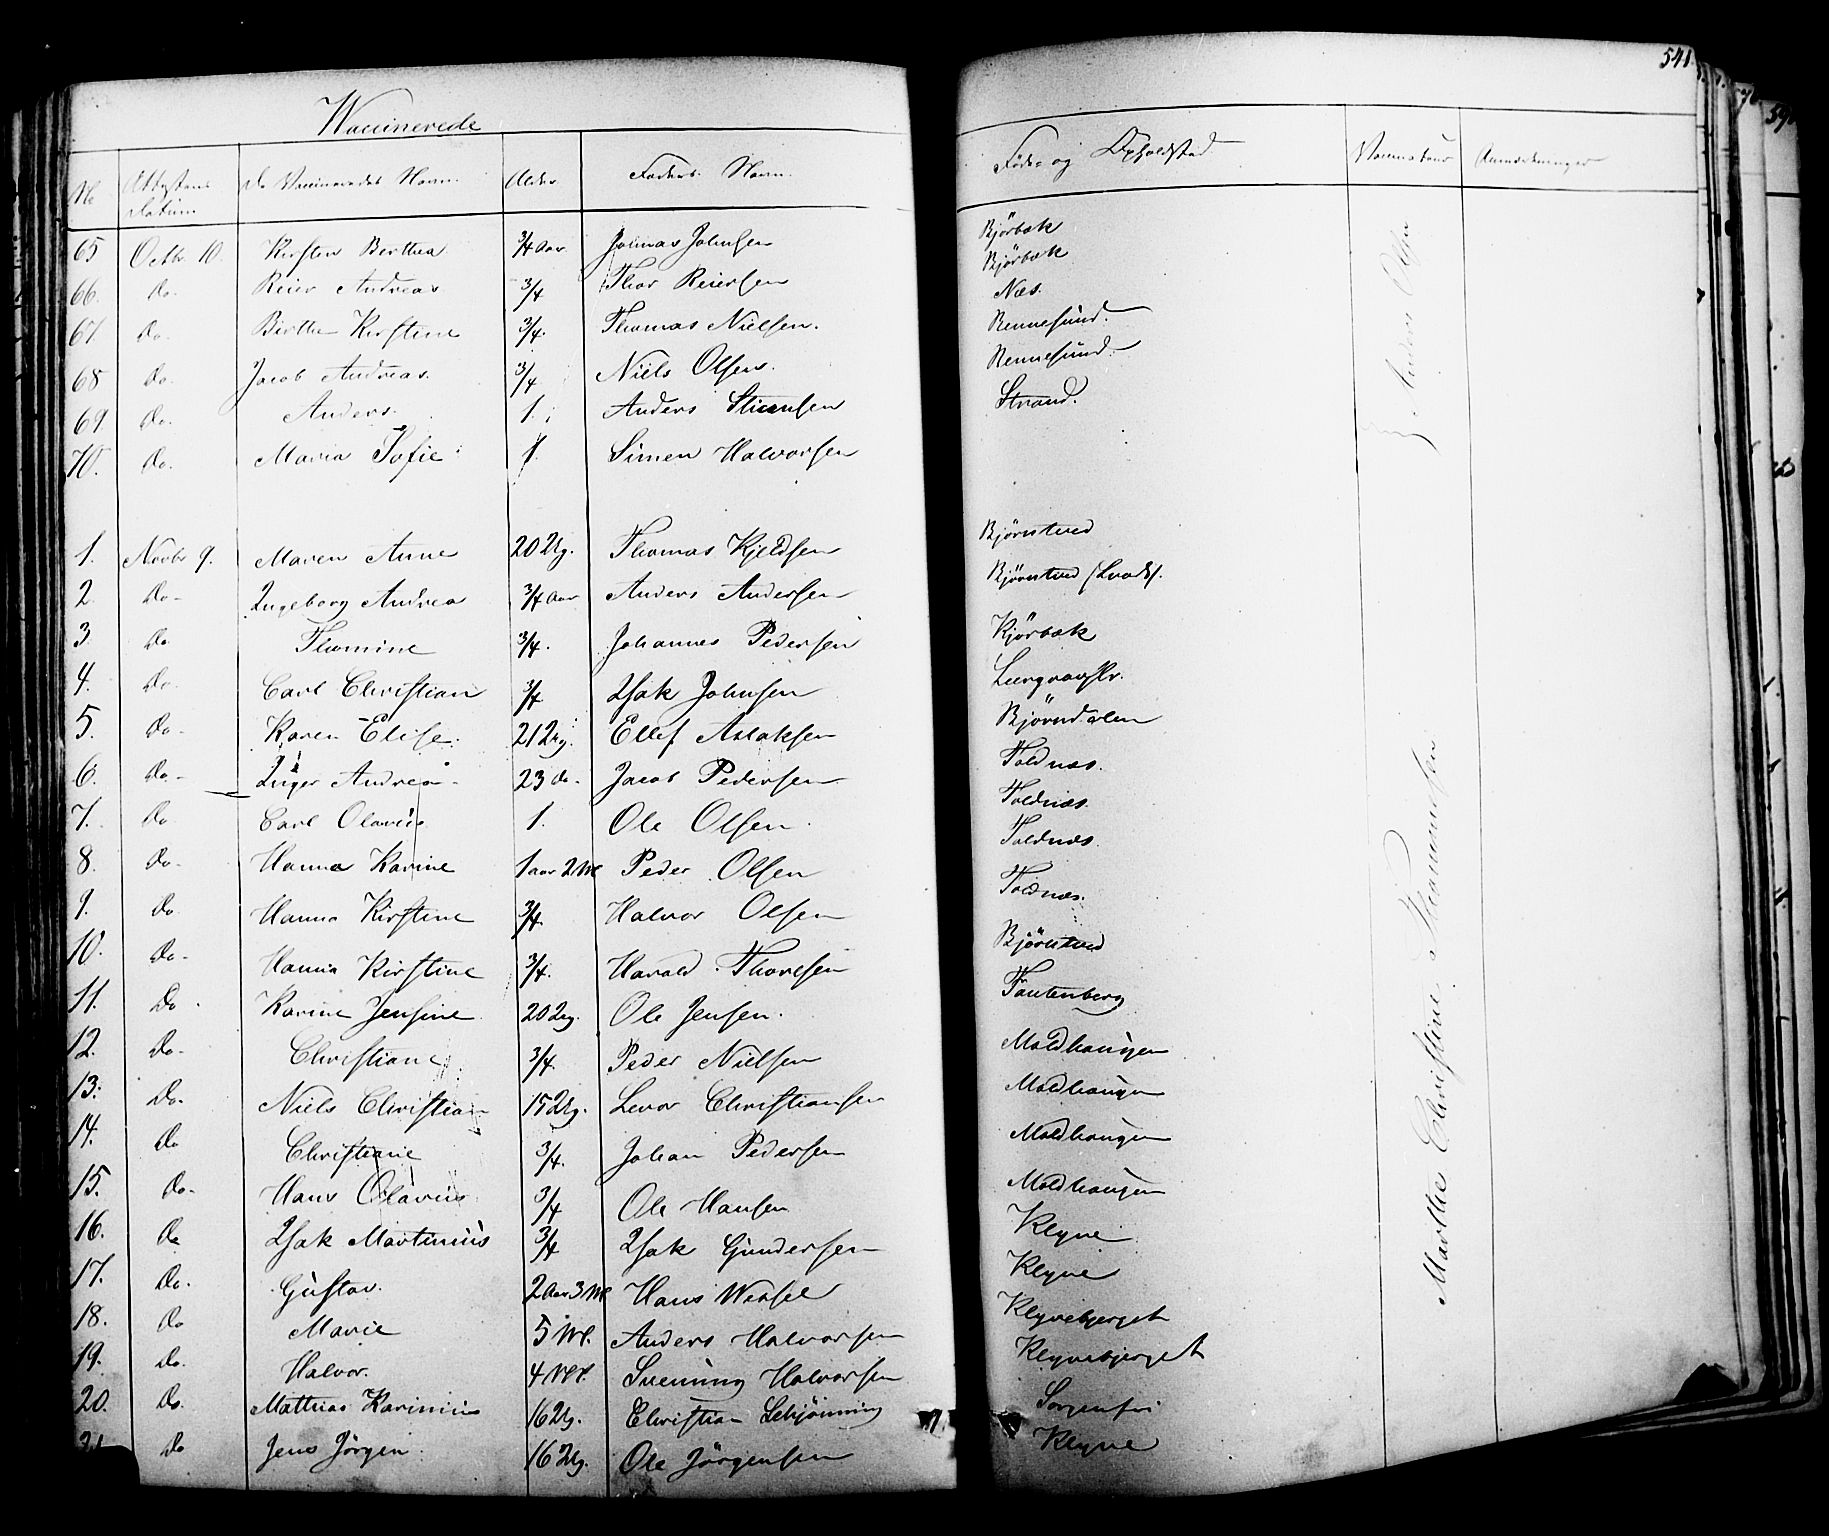 541
Waccinerede
No Attestens Datum De Vaccineredes Navn. Alder Faders Navn. Føde- og Opholdsted Vaccinateur Anmærkninger
65 Octbr 10. Kirsten Berthea 3/4 Aar Johnas Johnsen Bjørbæk
66. Do. Reier Andreas 3/4 Thor Reiersen Bjørbæk
67 Do. Birthe Kirstine 3/4. Thomas Nielsen. Næs.
68 Do. Jacob Andreas. 3/4 Niels Olsen. Rennesund.
69. Do. Anders. 1. Anders Stiensen Rennesund.
70. Do. Maria Sofie 1. Simen Halvorsen Strand.
Anders Olsen
1. Novbr 9. Maren Anne 20 Ug. Thomas Kjeldsen Bjørntved
2. Do- Ingeborg Andrea 3/4 Aar Anders Andersen Bjørntved
3. Do Thomine 3/4. Johannes Pedersen Kjørbæk
4. Do. Carl Christian 3/4 Isak Johnsen
5. Do- Karen Elise. 21 Ug. Ellef Aslaksen Bjørndalen
6. Do- Inger Andrea 23 Do- Jacob Pedersen Toldnæs.
7. Do Carl Olavus 1. Ole Olsen. Toldnæs.
8. Do- Hanna Karine 1 aar 2 M Peder Olsen Toldnæs.
9. Do. Hanna Kirstine 3/4. Halvor Olsen Toldnæs.
10. Do- Hanna Kirstine 3/4. Harald Thoresen Bjørntved
11. Do. Karine Jensine 20 Ug. Ole Jensen. Tautenberg
12. Do- Christiane 3/4. Peder Nielsen Moldhaugen
13. Do. Niels Christian 15 Ug. Levor Christiansen Moldhaugen
14. Do Christiane 3/4. Johan Pedersen Moldhaugen
15. Do- Hans Olavus 3/4 Ole Hansen Moldhaugen
16. Do Isak Martinius 3/4 Isak Gundersen Klyve
17. Do. Gustav. 2 Aar 3 M Hans Wessel Klyve
18. Do Marie 5 M. Anders Halvorsen Klyvebjerget
19. Do. Halvor. 4 M. Svenning Halvorsen Klyvebjerget
20. Do. Mathias Karinius 16 Ug. Christian Schjønning Sorgenfri
21 Do Jens Jörgen 16 Ug. Ole Jörgensen Klyve
Marthe Christine Thommesen